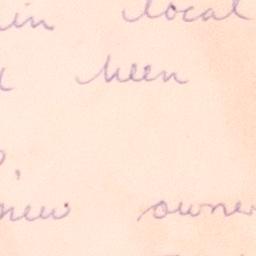 in local
been
new owner